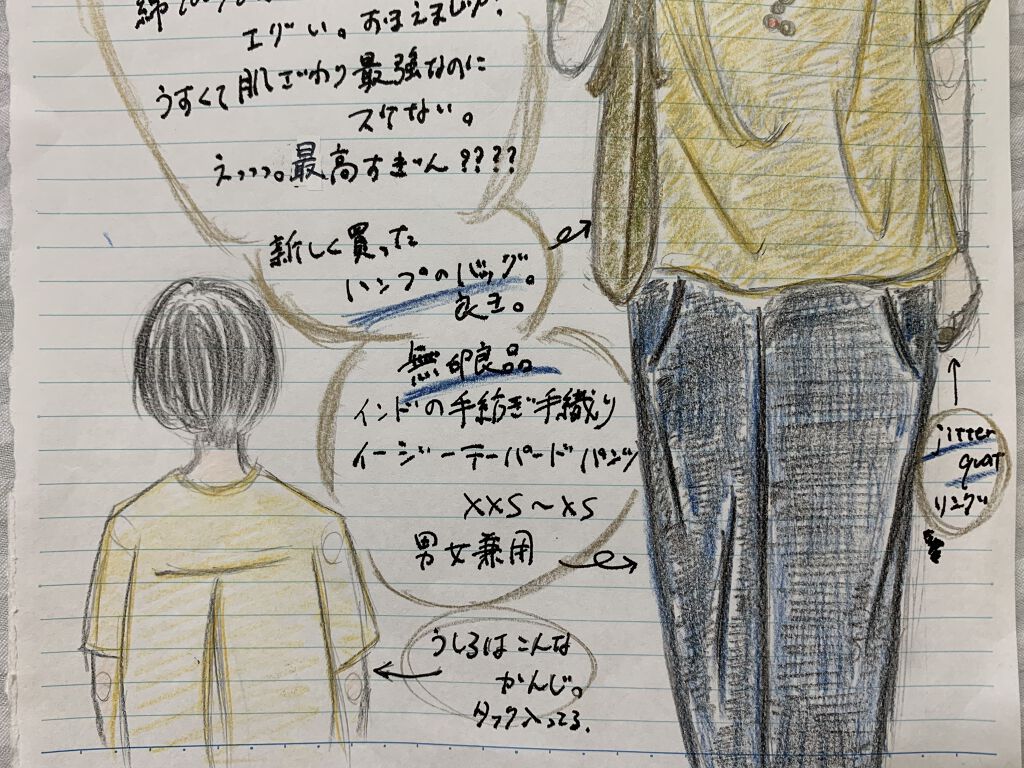 綿100%
エグい。おまえまじか?
うすくて肌ざわり最強なのに
スケない。
えっっっ。最高すぎん????
新しく買った
ハンプのバッグ。
良き。
無印良品
インドの手紡ぎ手織り
イージーテーパードパンツ
XXS〜XS
男女兼用
jitter
quat
リング
うしろはこんな
かんじ。
タック入ってる。